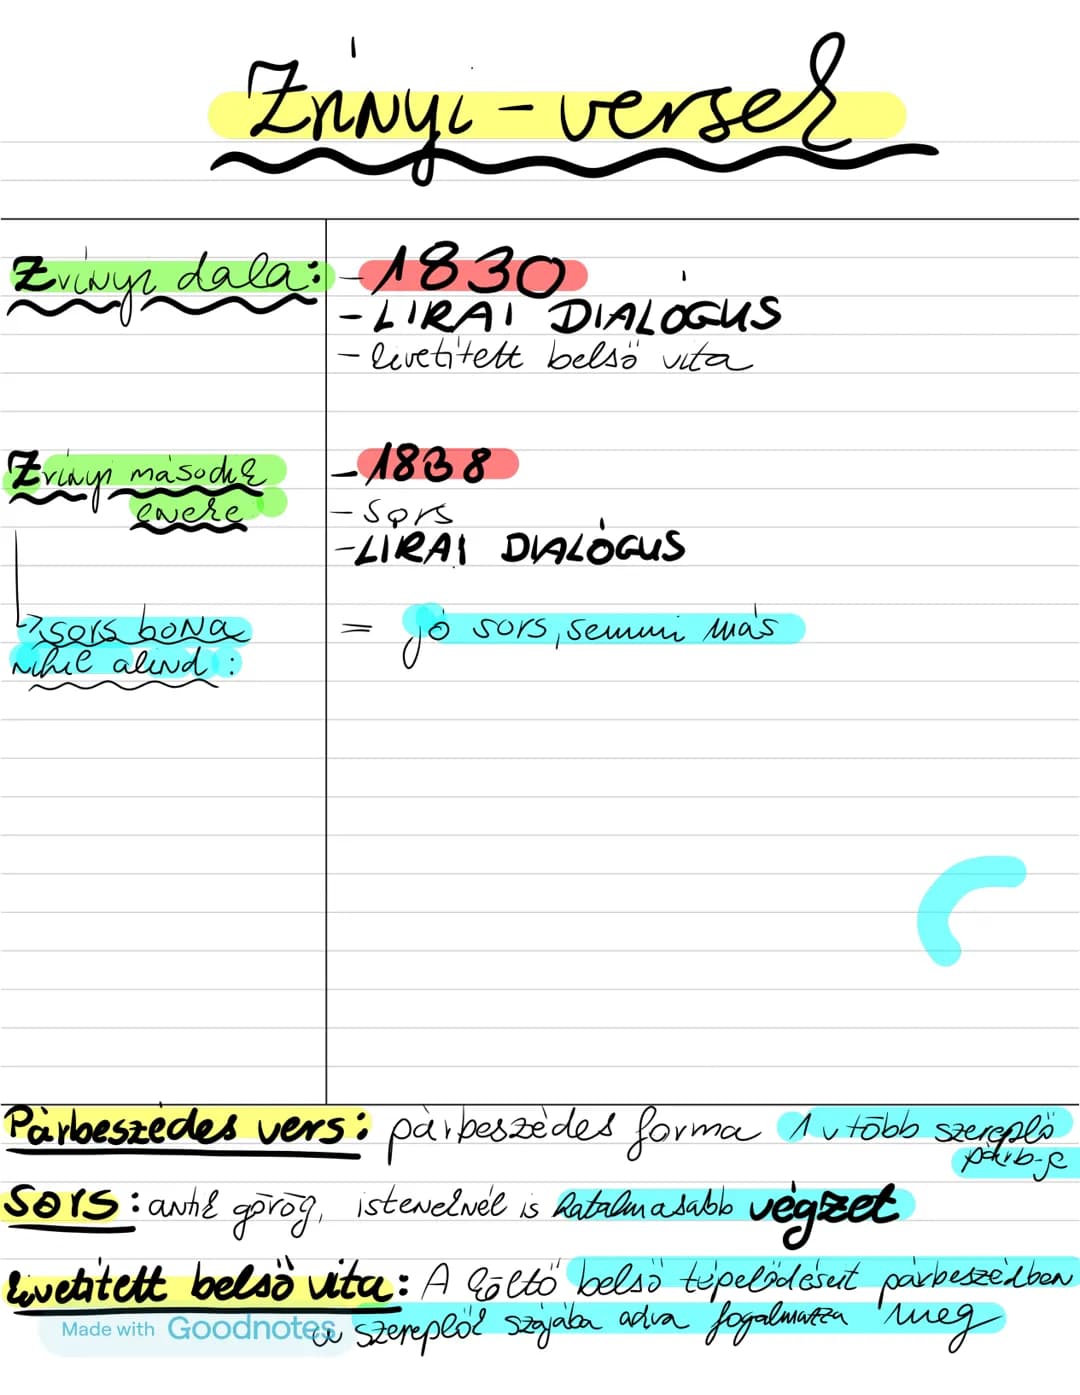 Zrínyi-versek
Zrínyi dala:
- 1830
- LÍRAI DIALÓGUS
- kivetített belső vita
Zrínyi második
éneke
- 1838
- Sors
- LÍRAI DIALÓGUS
→ sors bona
nihil aliud :
= jó sors, semmi más
Párbeszédes vers: párbeszédes forma 1 v több szereplő
párb-e
Sors: antik görög, isteneknél is hatalmasabb végzet
kivetített belső vita: A költő belső tépelődéseit párbeszédben
a szereplők szájába adva fogalmazza meg
Made with Goodnotes